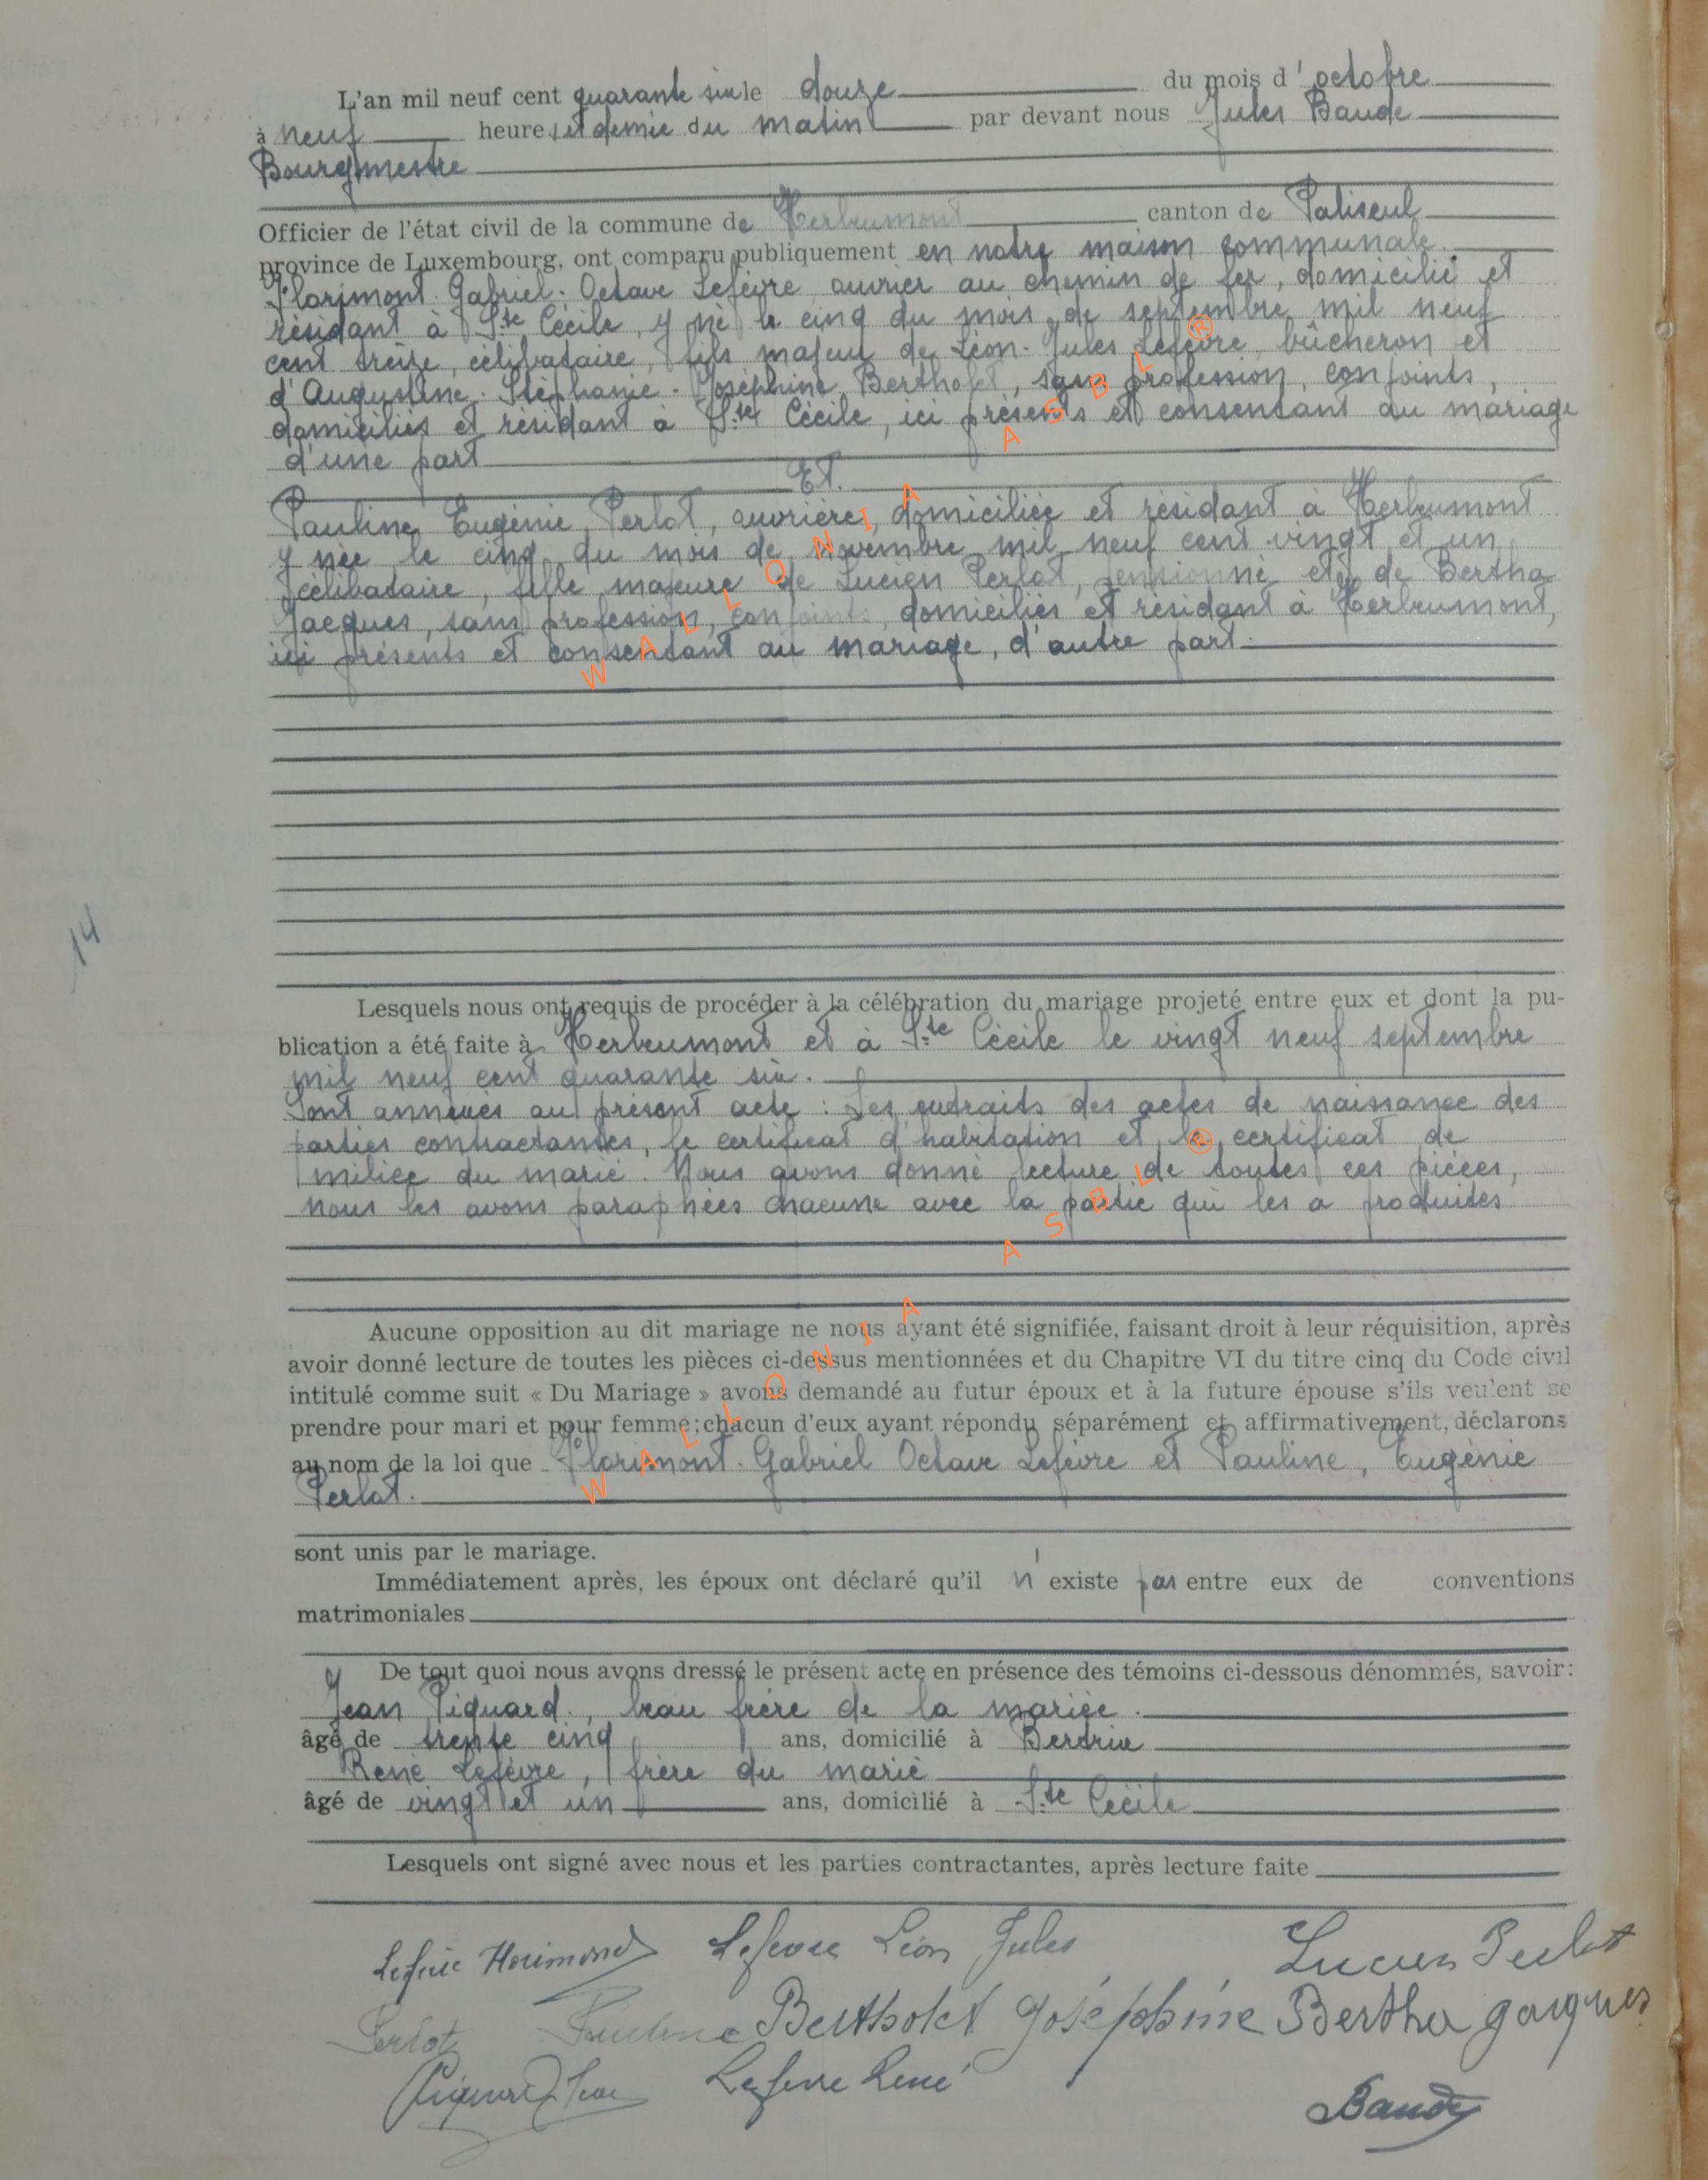 L'an mil neuf cent quarante six le douze du mois d'octobre
à neuf heures et demie du matin par devant nous Jules Baude
Bourgmestre
Officier de l'état civil de la commune de Herbeumont canton de Paliseul
province de Luxembourg, ont comparu publiquement en notre maison communale.
Florimont. Gabriel. Octave Lefèvre, ouvrier au chemin de fer, domicilié et
résidant à Ste Cécile, y né le cinq du mois de septembre mil neuf
cent treize, célibataire, fils majeur de Léon. Jules Lefèvre, bûcheron et
d'Augustine. Stéphanie. Joséphine Bertholet, sans profession, conjoints,
domiciliés et résidant à Ste Cécile, ici présents et consentant au mariage
d'une part
Et.
Pauline, Eugénie Perlot, ouvrière, domiciliée et résidant à Herbeumont
y née le cinq du mois de novembre mil neuf cent vingt et un,
célibataire, fille majeure de Lucien Perlot, pensionné et de Bertha
Jacques, sans profession, conjoints, domiciliés et résidant à Herbeumont,
ici présents et consentant au mariage, d'autre part.
WALLONIA ASBL ®
14
Lesquels nous ont requis de procéder à la célébration du mariage projeté entre eux et dont la pu-
blication a été faite à Herbeumont et à Ste Cécile le vingt neuf septembre
mil neuf cent quarante six.
Sont annexés au présent acte : Les extraits des actes de naissance des
parties contractantes, le certificat d'habitation et le certificat de
milice du marié. Nous avons donné lecture de toutes ces pièces,
nous les avons paraphées chacune avec la partie qui les a produites
Aucune opposition au dit mariage ne nous ayant été signifiée, faisant droit à leur réquisition, après
avoir donné lecture de toutes les pièces ci-dessus mentionnées et du Chapitre VI du titre cinq du Code civil
intitulé comme suit « Du Mariage » avons demandé au futur époux et à la future épouse s'ils veulent se
prendre pour mari et pour femme; chacun d'eux ayant répondu séparément et affirmativement, déclarons
au nom de la loi que Florimont. Gabriel Octave Lefèvre et Pauline, Eugénie
Perlot.
WALLONIA ASBL ®
sont unis par le mariage.
Immédiatement après, les époux ont déclaré qu'il n'existe pas entre eux de conventions
matrimoniales
De tout quoi nous avons dressé le présent acte en présence des témoins ci-dessous dénommés, savoir:
Jean Piquard, beau frère de la mariée.
âgé de trente cinq ans, domicilié à Bertrix
René Lefèvre, frère du marié
âgé de vingt et un ans, domicilié à Ste Cécile
Lesquels ont signé avec nous et les parties contractantes, après lecture faite
Lefèvre Florimond Lefevre Léon Jules Lucien Perlot
Perlot Pauline Bertholet Joséphine Bertha Jacques
Piquard Jean Lefevre René Baude